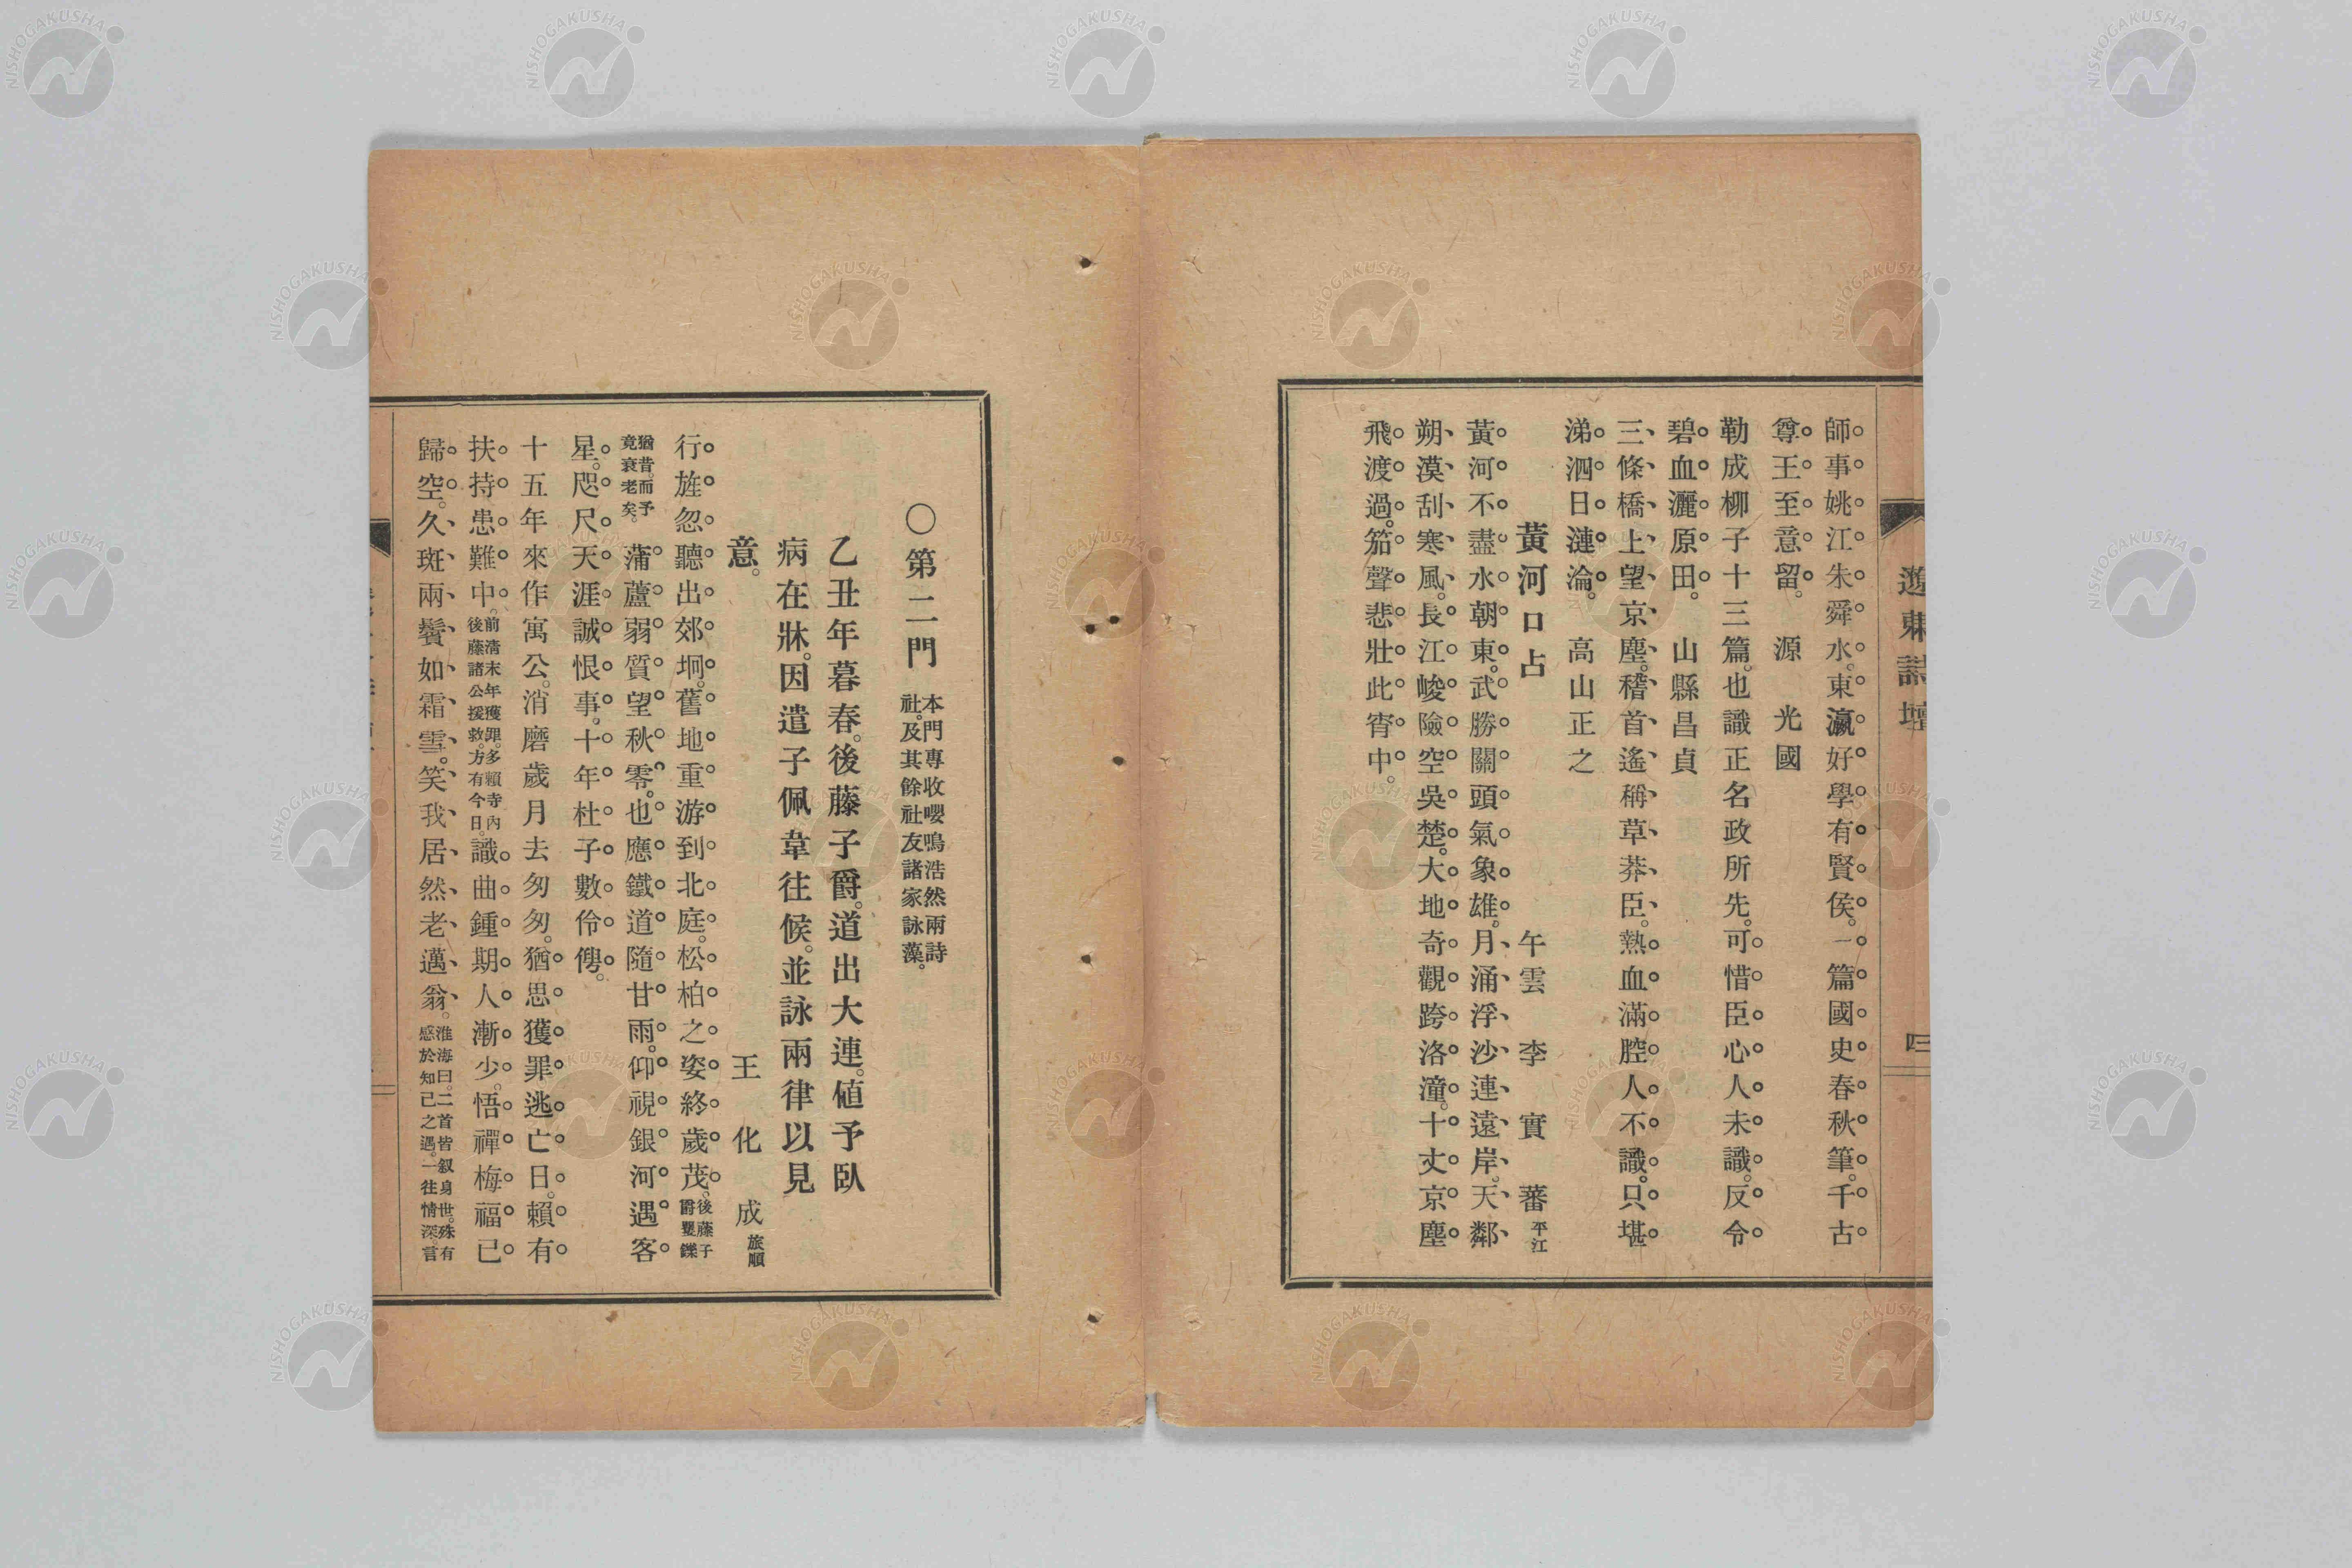 遼東詩壇
四
師事姚江朱舜水。東瀛好學有賢侯。一篇國史春秋筆。千古
尊王至意留。　源　光國
勒成柳子十三篇。也識正名政所先。可惜臣心人未識。反令
碧血灑原田。　山縣昌貞
三條橋上望京塵。稽首遙稱草莽臣。熱血滿腔人不識。只堪
涕泗日漣淪。　高山正之
黃河口占　午雲　李　實　蕃　平江
黃河不盡水朝東。武勝關頭氣象雄。月涌浮沙連遠岸。天鄰
朔漠刮寒風。長江峻險空吳楚。大地奇觀跨洛潼。十丈京塵
飛渡過。笳聲悲壯此宵中。
〇第二門　本門專收嚶鳴浩然兩詩
社。及其餘社友諸家詠藻。
乙丑年暮春。後藤子爵。道出大連。值予臥
病在牀。因遣子佩韋往候。並詠兩律以見
意。　王　化　成　旅順
行旌忽聽出郊坰。舊地重游到北庭。松柏之姿終歲茂。後藤子
爵矍鑠
猶昔。而予
竟衰老矣。蒲蘆弱質望秋零。也應鐵道隨甘雨。仰視銀河遇客
星。咫尺天涯誠恨事。十年杜子數伶俜。
十五年來作寓公。消磨歲月去匆匆。猶思獲罪逃亡日。賴有
扶持患難中。前清末年獲罪。多賴寺內
後藤諸公援救。方有今日。識曲鍾期人漸少。悟禪梅福已
歸空。久斑兩鬢如霜雪。笑我居然老邁翁。淮海曰。二首皆叙身世。殊有
感於知己之遇。一往情深。言